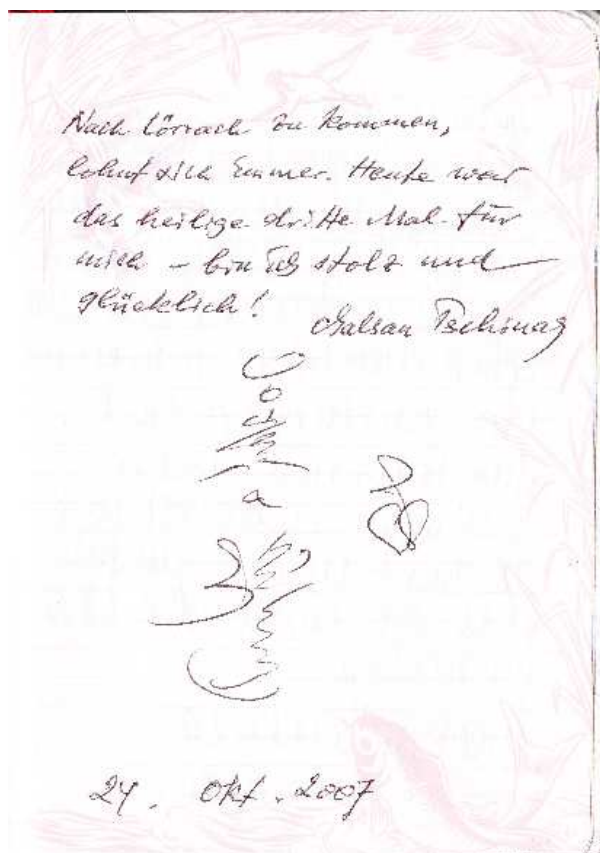 Nach Lörrach zu kommen,
lohnt sich immer. Heute war
das heilige dritte Mal für
mich – bin ich stolz und
glücklich!
Galsan Tschinag
24. Okt. 2007